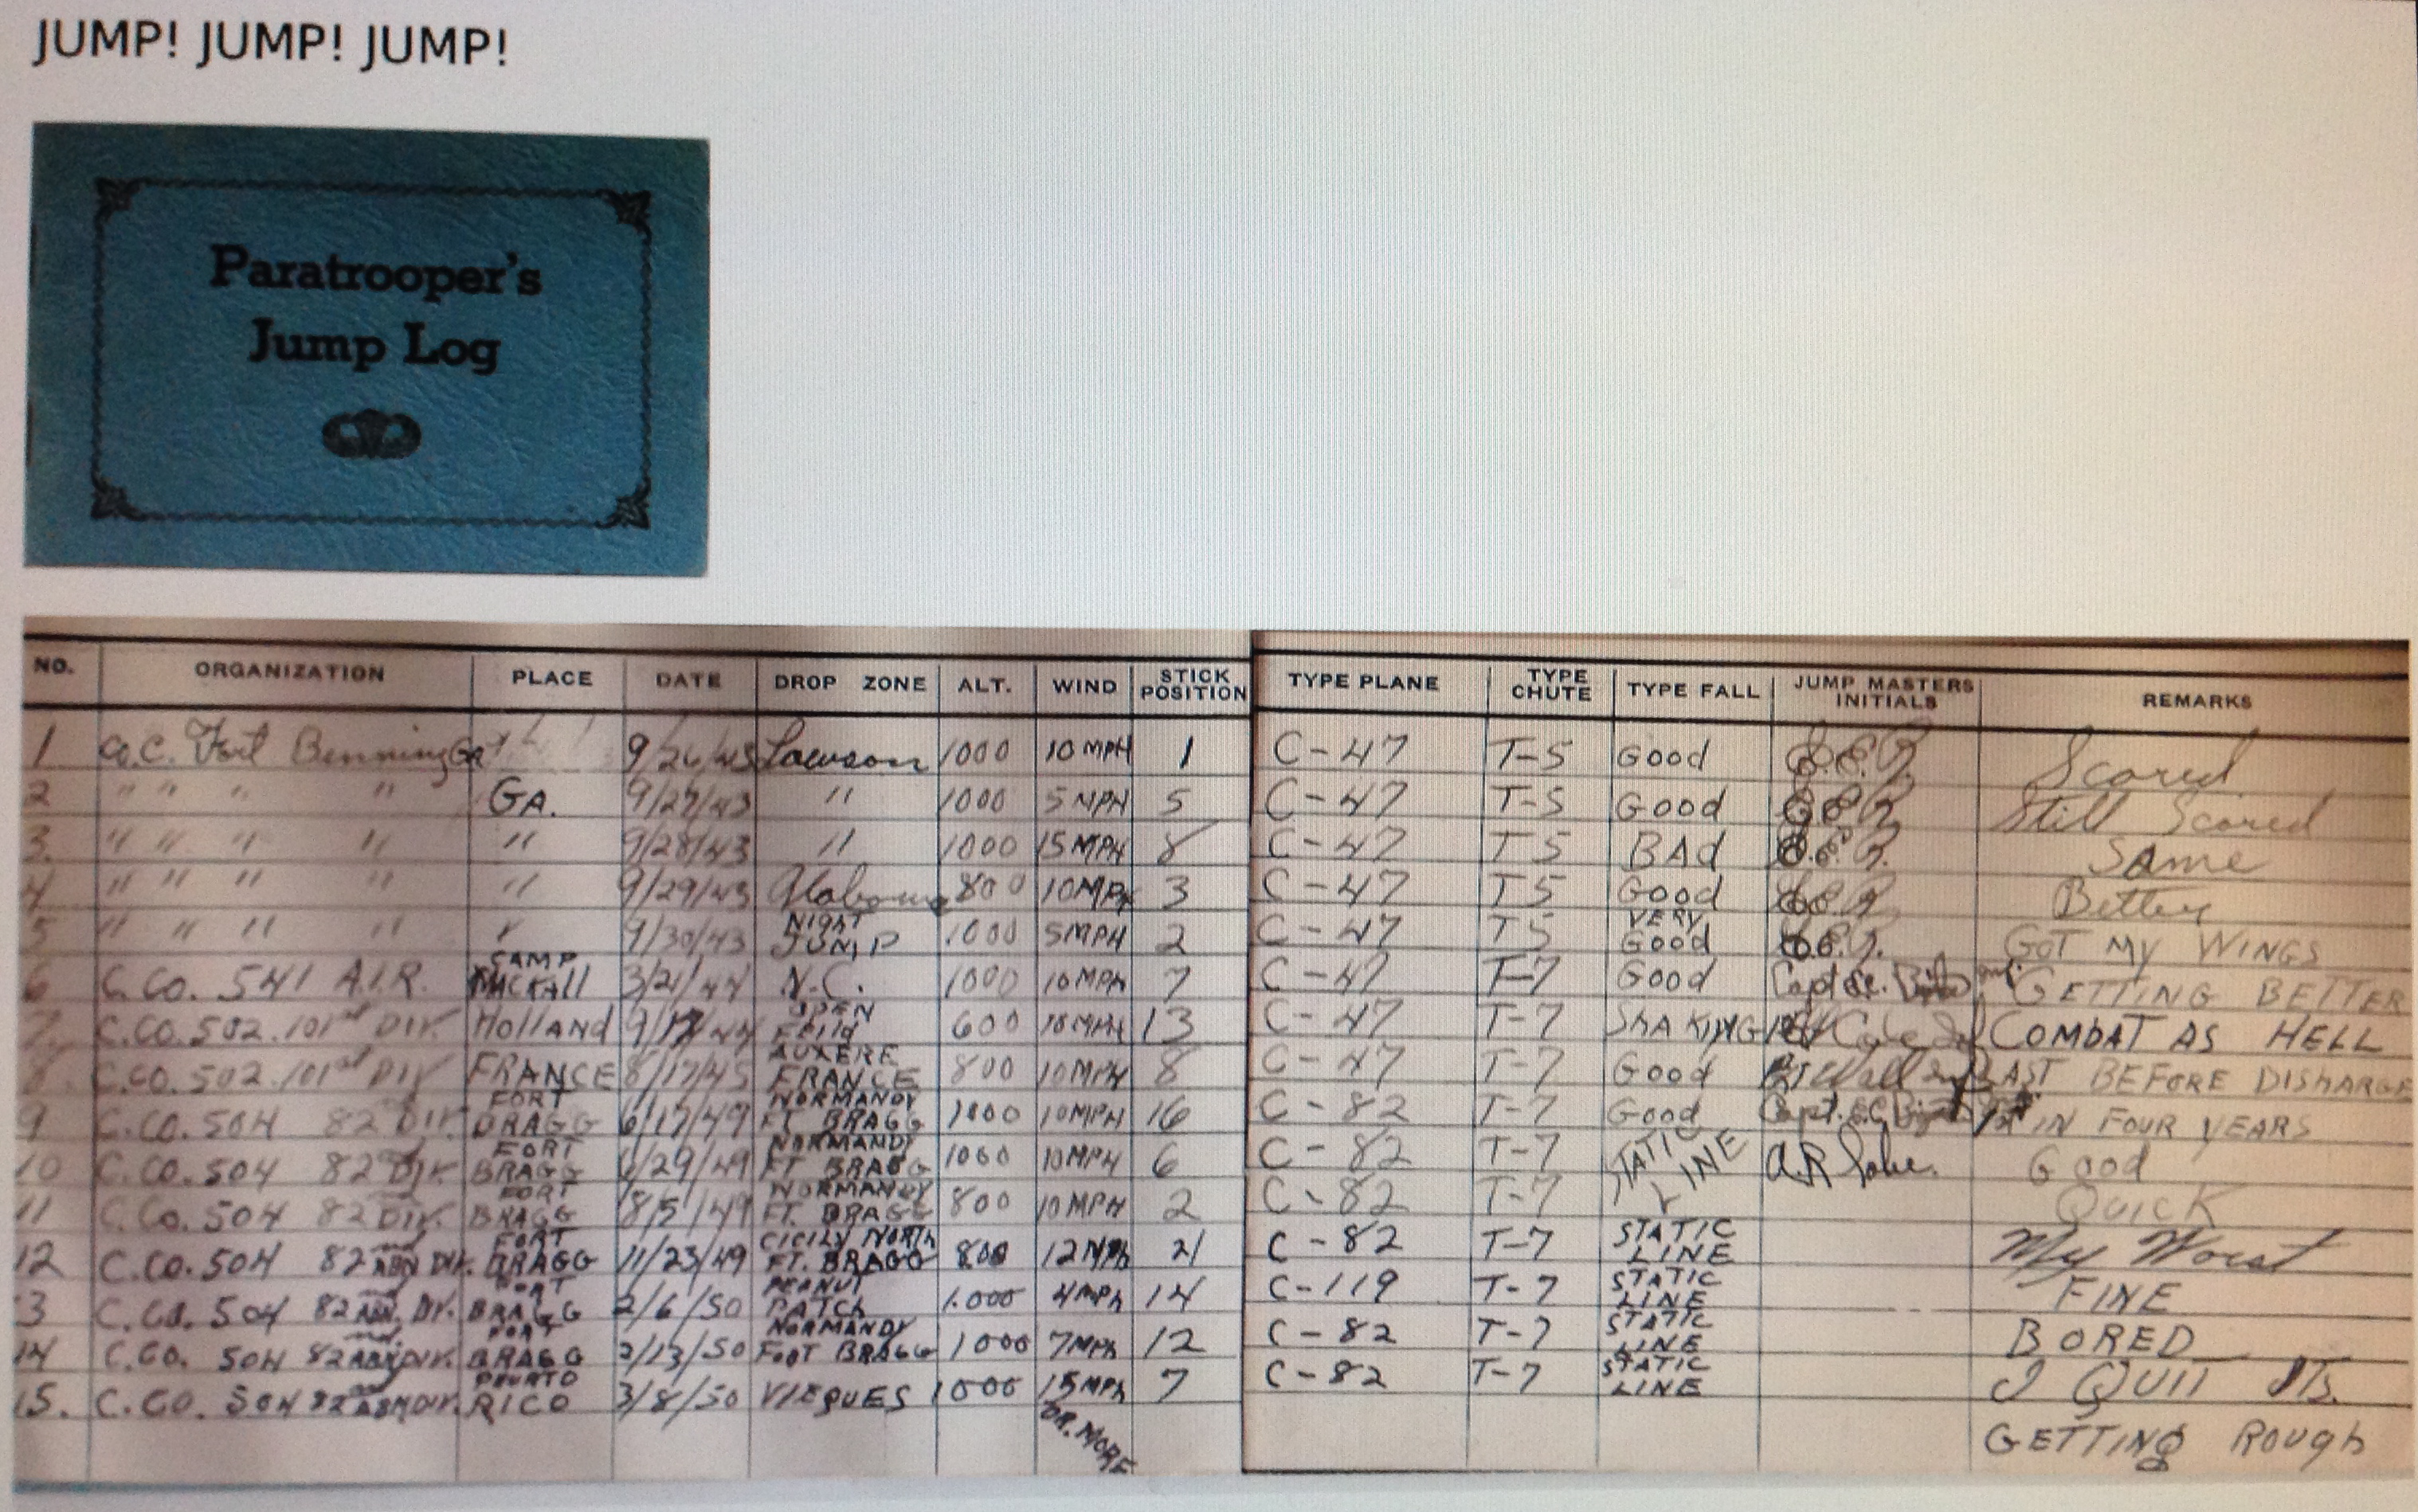 JUMP! JUMP! JUMP!
Paratrooper's
Jump Log
NO. ORGANIZATION PLACE DATE DROP ZONE ALT. WIND STICK POSITION TYPE PLANE TYPE CHUTE TYPE FALL JUMP MASTERS INITIALS REMARKS
1 Fort Benning Ga 9/26/43 Lawson 1000 10 MPH 1 C-47 T-5 Good Scared
2 " " " " GA. 9/27/43 " 1000 5 MPH 5 C-47 T-5 Good Still Scared
3. " " " " " 9/28/43 " 1000 15 MPH 8 C-47 T5 BAd Same
4 " " " " " 9/29/43 Alabama 800 10 MPH 3 C-47 T5 Good Better
5 " " " " " 9/30/43 NIGHT JUMP 1000 5MPH 2 C-47 T5 VERY Good GOT MY WINGS
6 C.CO. 541 A.I.R. CAMP MACKAll 3/21/44 N.C. 1000 10MPH 7 C-47 T-7 Good Capt GETTING BETTER
7. C.CO. 502. 101st DIV. HOllANd 9/17/44 OPEN FEIld 600 10MPH 13 C-47 T-7 SHAKING COMBAT AS HELL
8. C.CO. 502. 101st DIV FRANCE 8/17/45 AUXERE FRANCE 800 10MPH 8 C-47 T-7 Good LAST BEFORE DISHARGE
9 C.CO. 504 82 DIV. FORT BRAGG 6/17/49 NORMANDY FT. BRAGG 1000 10MPH 16 C-82 T-7 Good Capt. 1st IN FOUR YEARS
10 C.CO. 504 82nd DIV. FORT BRAGG /29/49 NORMANDY FT. BRAGG 1000 10MPH 6 C-82 T-7 STATIC LINE A.R. Good
11 C.CO. 504 82 DIV. FORT BRAGG 8/5/49 NORMANDY FT. BRAGG 800 10MPH 2 C-82 T-7 QUICK
12 C.CO. 504 82nd ABN DIV. FORT BRAGG 11/23/49 CICILY NORTH FT. BRAGG 800 12MPh 21 C-82 T-7 STATIC LINE My Worst
3 C.CO. 504 82nd ABN. DIV. FORT BRAGG 2/6/50 PEANUT PATCH 1.000 4MPh 14 C-119 T-7 STATIC LINE FINE
14 C.CO. 504 82nd ABN DIV. FORT BRAGG 2/13/50 NORMANDY FORT BRAGG 1000 7MPh 12 C-82 T-7 STATIC LINE BORED
15. C.CO. 504 82nd ABN DIV. PUURTO RICO 3/8/50 VIEQUES 1000 15MPh 7 C-82 T-7 STATIC LINE I QUIT ITS.
OR. MORE GETTING ROUGh